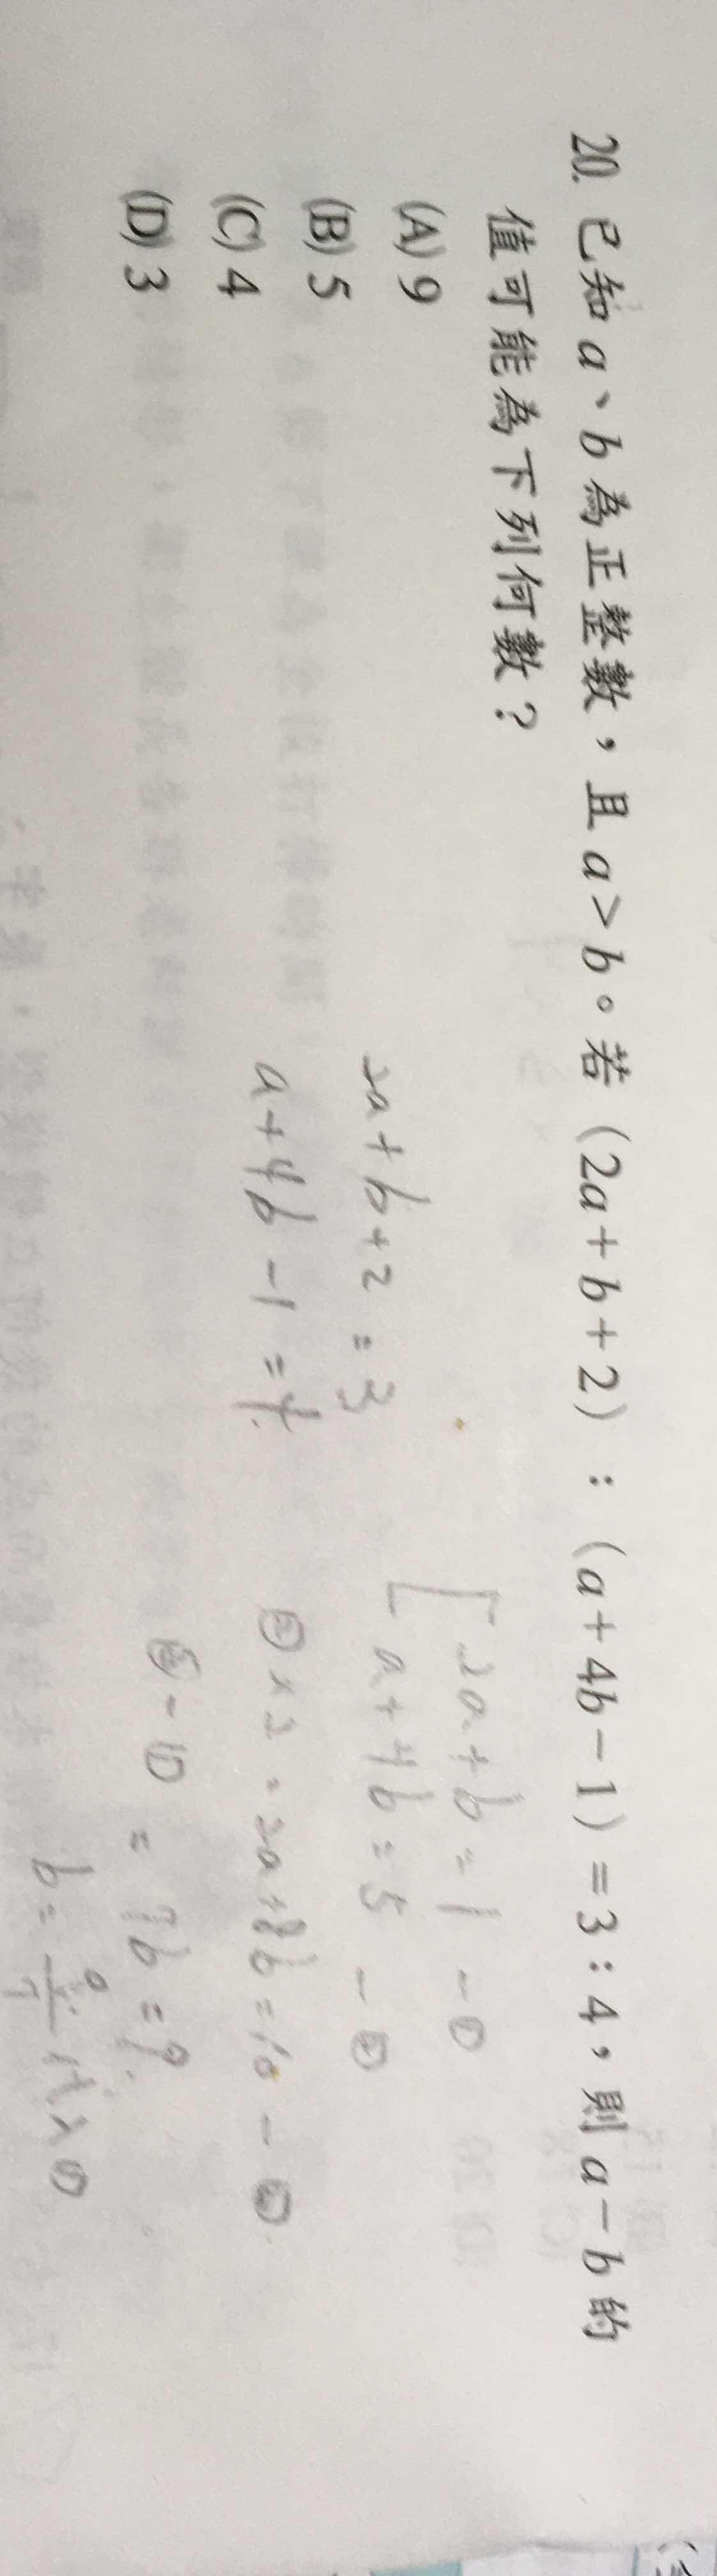 20. 已知 a、b 為正整數，且 a > b。若 (2a + b + 2) : (a + 4b − 1) = 3 : 4，則 a − b 的
值可能為下列何數？
(A) 9
(B) 5
(C) 4
(D) 3
2a + b + 2 = 3
a + 4b − 1 = 4
2a + b = 1 − ①
a + 4b = 5 − ②
②×2 = 2a + 8b = 10 −
− ① = 7b = 9
b = 9/7 代入①